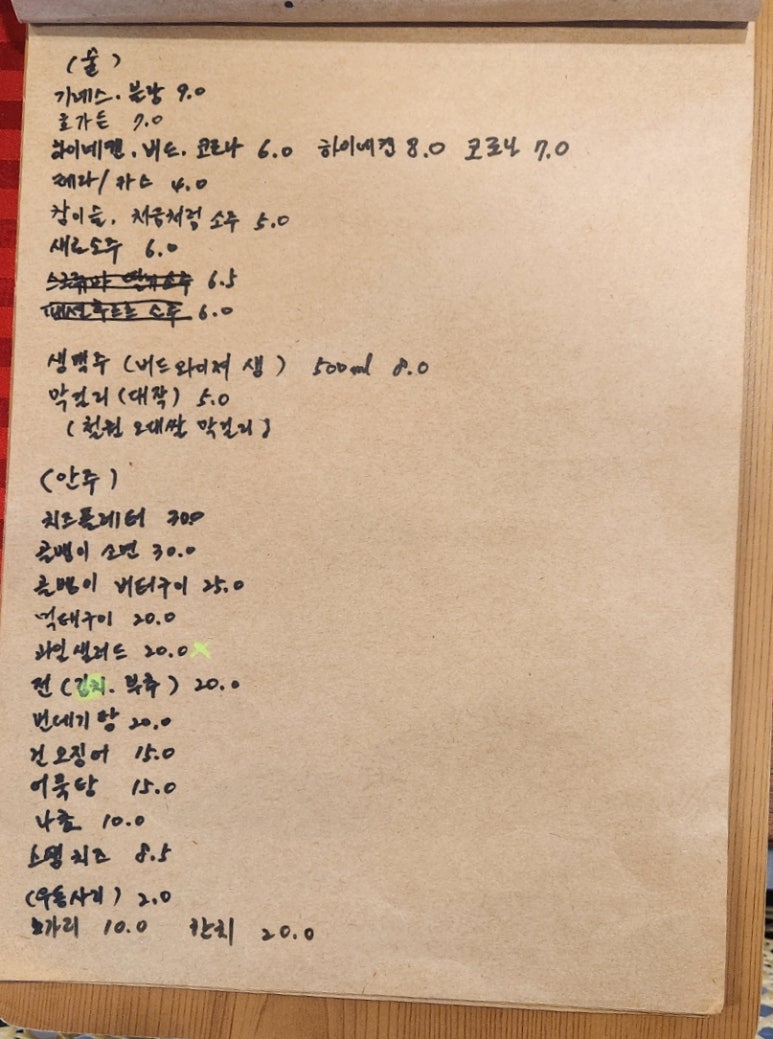 (술)
기네스. 블랑 9.0
호가든 7.0
하이네켄. 버드. 코로나 6.0 하이네켄 8.0 코로나 7.0
테라/카스 4.0
참이슬. 처음처럼 소주 5.0
새로소주 6.0
6.5
소주 6.0
생맥주 (버드와이저 생) 500ml 8.0
막걸리 (대작) 5.0
(철원 오대쌀 막걸리)
(안주)
치즈플레터 30.0
골뱅이 소면 30.0
골뱅이 버터구이 25.0
먹태구이 20.0
과일샐러드 20.0 x
전 (김치. 부추) 20.0
번데기탕 20.0
건오징어 15.0
어묵탕 15.0
나쵸 10.0
치즈 8.5
(우동사리) 2.0
노가리 10.0 한치 20.0